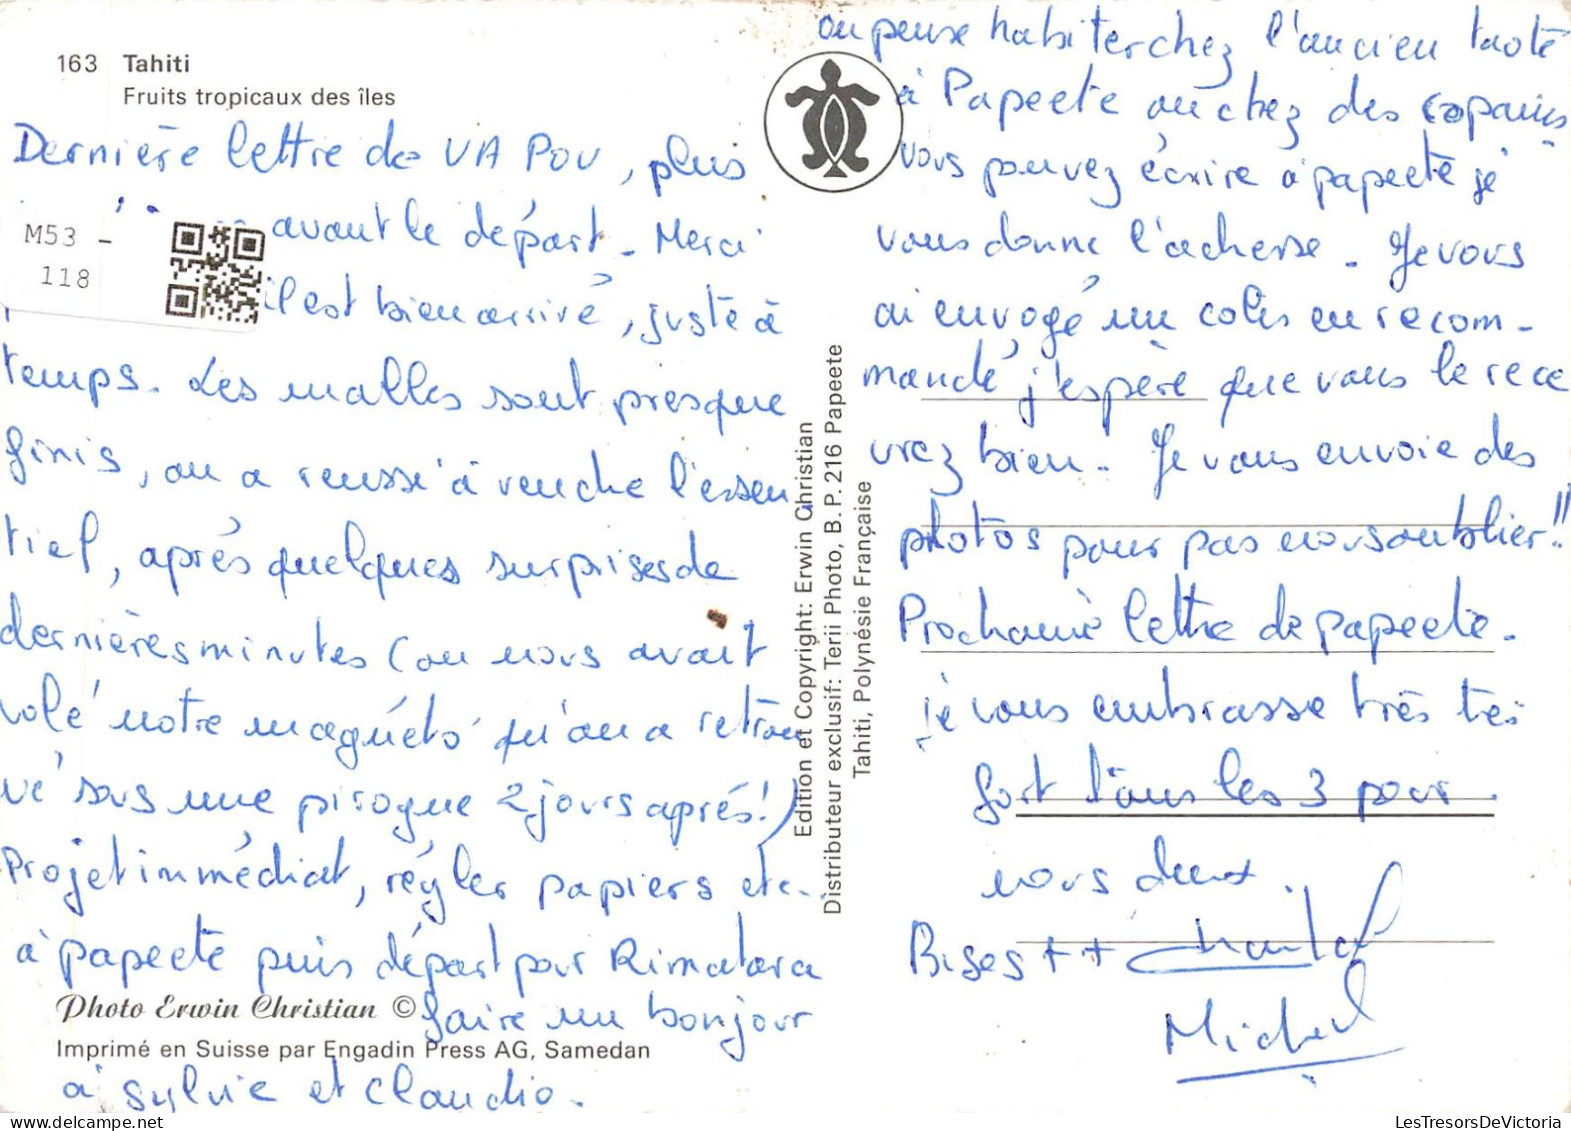 163 Tahiti
Fruits tropicaux des îles
Dernière lettre de UA POU, plus
avant le départ. Merci
il est bien arrivé, juste à
temps. Les malles sont presque
finis, on a reussi à vendre l'essen
tiel, après quelques surprises de
dernières minutes (on nous avait
volé notre magnéto qu'on a retrou
vé sous une pirogue 2 jours après!)
Projet immédiat, régler papiers etc..
à papeete puis départ pour Rimatara
faire un bonjour
à Sylvie et Claudio.
Photo Erwin Christian ©
Imprimé en Suisse par Engadin Press AG, Samedan
M53 -
118
Edition et Copyright: Erwin Christian
Distributeur exclusif: Terii Photo, B. P. 216 Papeete
Tahiti, Polynésie Française
on pense habiter chez l'ancien
à Papeete ou chez des copains
vous pouvez écrire à papeete je
vous donne l'adresse. Je vous
ai envoyé un colis en recom-
mandé j'espère que vous le rece
vrez bien. Je vous envoie des
photos pour pas nous oublier!!
Prochaine lettre de papeete.
je vous embrasse très très
fort tous les 3 pour
nous deux.
Bises ++ Chantal
Michel
LesTresorsDeVictoria